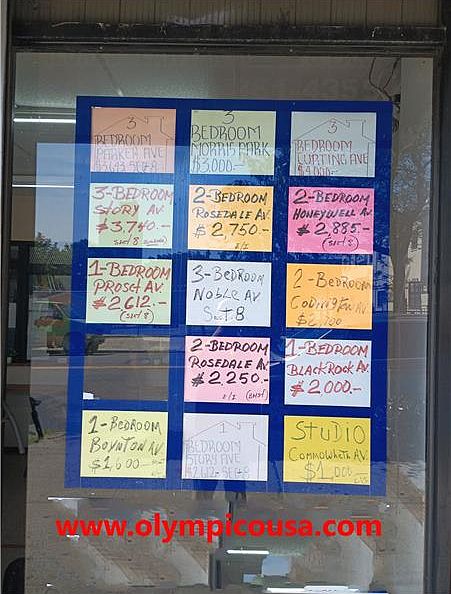 3
BEDROOM
PARKER AVE
3
BEDROOM
MORRIS PARK
$3,000.-
3
BEDROOM
CURTING AVE
$4,000.-
3-BEDROOM
STORY AV.
$3,740.-
SECT 8
2-BEDROOM
ROSEDALE AV.
$2,750.-
2-BEDROOM
HONEYWELL AV.
$2,885.-
(SECT 8)
1-BEDROOM
PROSCT AV.
$2,612.-
(SECT 8)
3-BEDROOM
NOBLE AV
SCT.8
2-BEDROOM
CODINGTON AV
2-BEDROOM
ROSEDALE AV.
$2,250.-
1-BEDROOM
BLACKROCK AV.
$2,000.-
1-BEDROOM
BOYNTON AV.
$1,600
1
BEDROOM
STORY AVE
STUDIO
COMMOWHETH AV.
$1,000
www.olympicousa.com